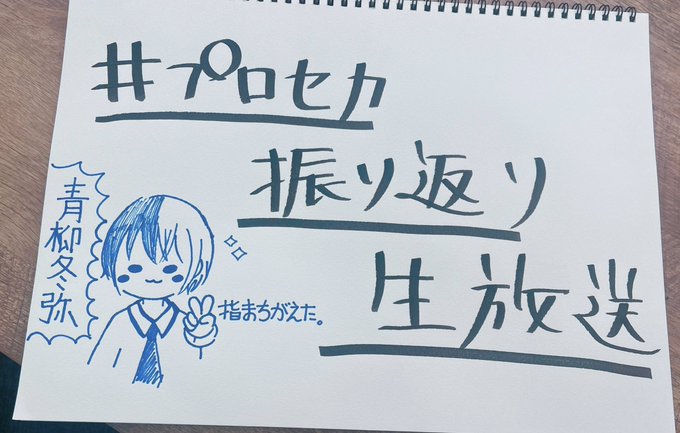 #プロセカ
振り返り
生放送
青柳冬弥
指まちがえた。